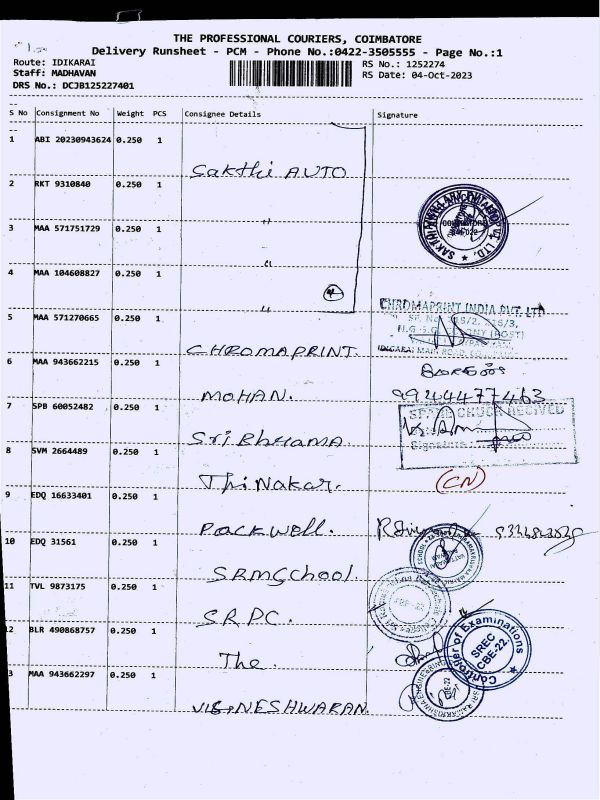 THE PROFESSIONAL COURIERS, COIMBATORE
Delivery Runsheet - PCM - Phone No.:0422-3505555 - Page No.:1
Route: IDIKARAI RS No.: 1252274
Staff: MADHAVAN RS Date: 04-Oct-2023
DRS No.: DCJB125227401
S No Consignment No Weight PCS Consignee Details Signature
1 ABI 20230943624 0.250 1
Sakthi AUTO
2 RKT 9310840 0.250 1
"
3 MAA 571751729 0.250 1
"
4 MAA 104608827 0.250 1
"
4
5 MAA 571270665 0.250 1
CHROMAPRINT INDIA PVT. LTD
CHROMAPRINT.
6 MAA 943662215 0.250 1
MOHAN. 9944477463
7 SPB 60052482 0.250 1
Sri Bhrama
Signature
8 SVM 2664489 0.250 1
ThiNakar. (CN)
9 EDQ 16633401 0.250 1
Packwell.
10 EDQ 31561 0.250 1
SRMSchool.
11 TVL 9873175 1
S.R.P.C.
12 BLR 490868757 0.250 1
The
Controller of Examinations
SREC
CBE-22
3 MAA 943662297 0.250 1
VIGNESHWARAN.